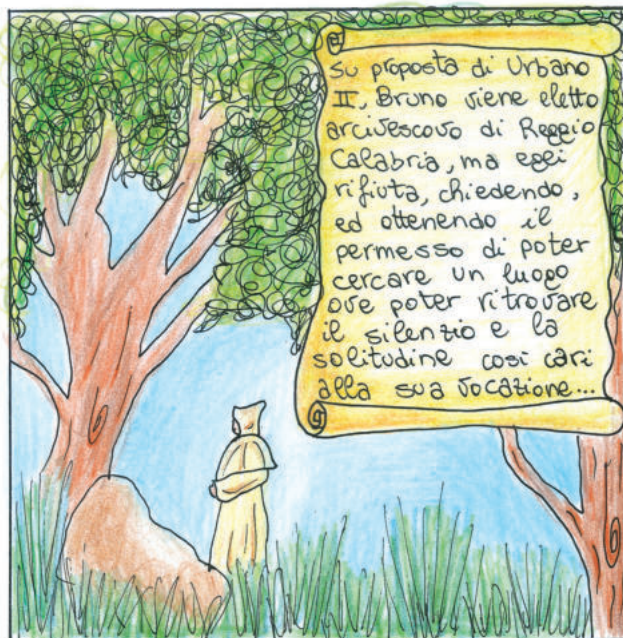 su proposta di Urbano
II, Bruno viene eletto
arcivescovo di Reggio
Calabria, ma egli
rifiuta, chiedendo,
ed ottenendo il
permesso di poter
cercare un luogo
ove poter ritrovare
il silenzio e la
solitudine così cari
alla sua vocazione...